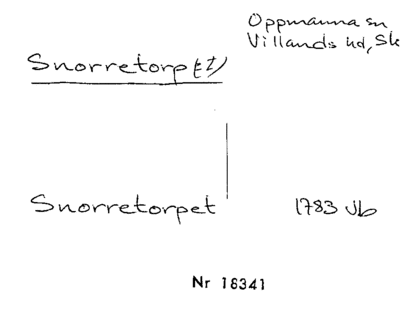 Oppmanna sn
Villands hd, Sk
Snorretorp(et)
Snorretorpet 1783 Vb
Nr 18341